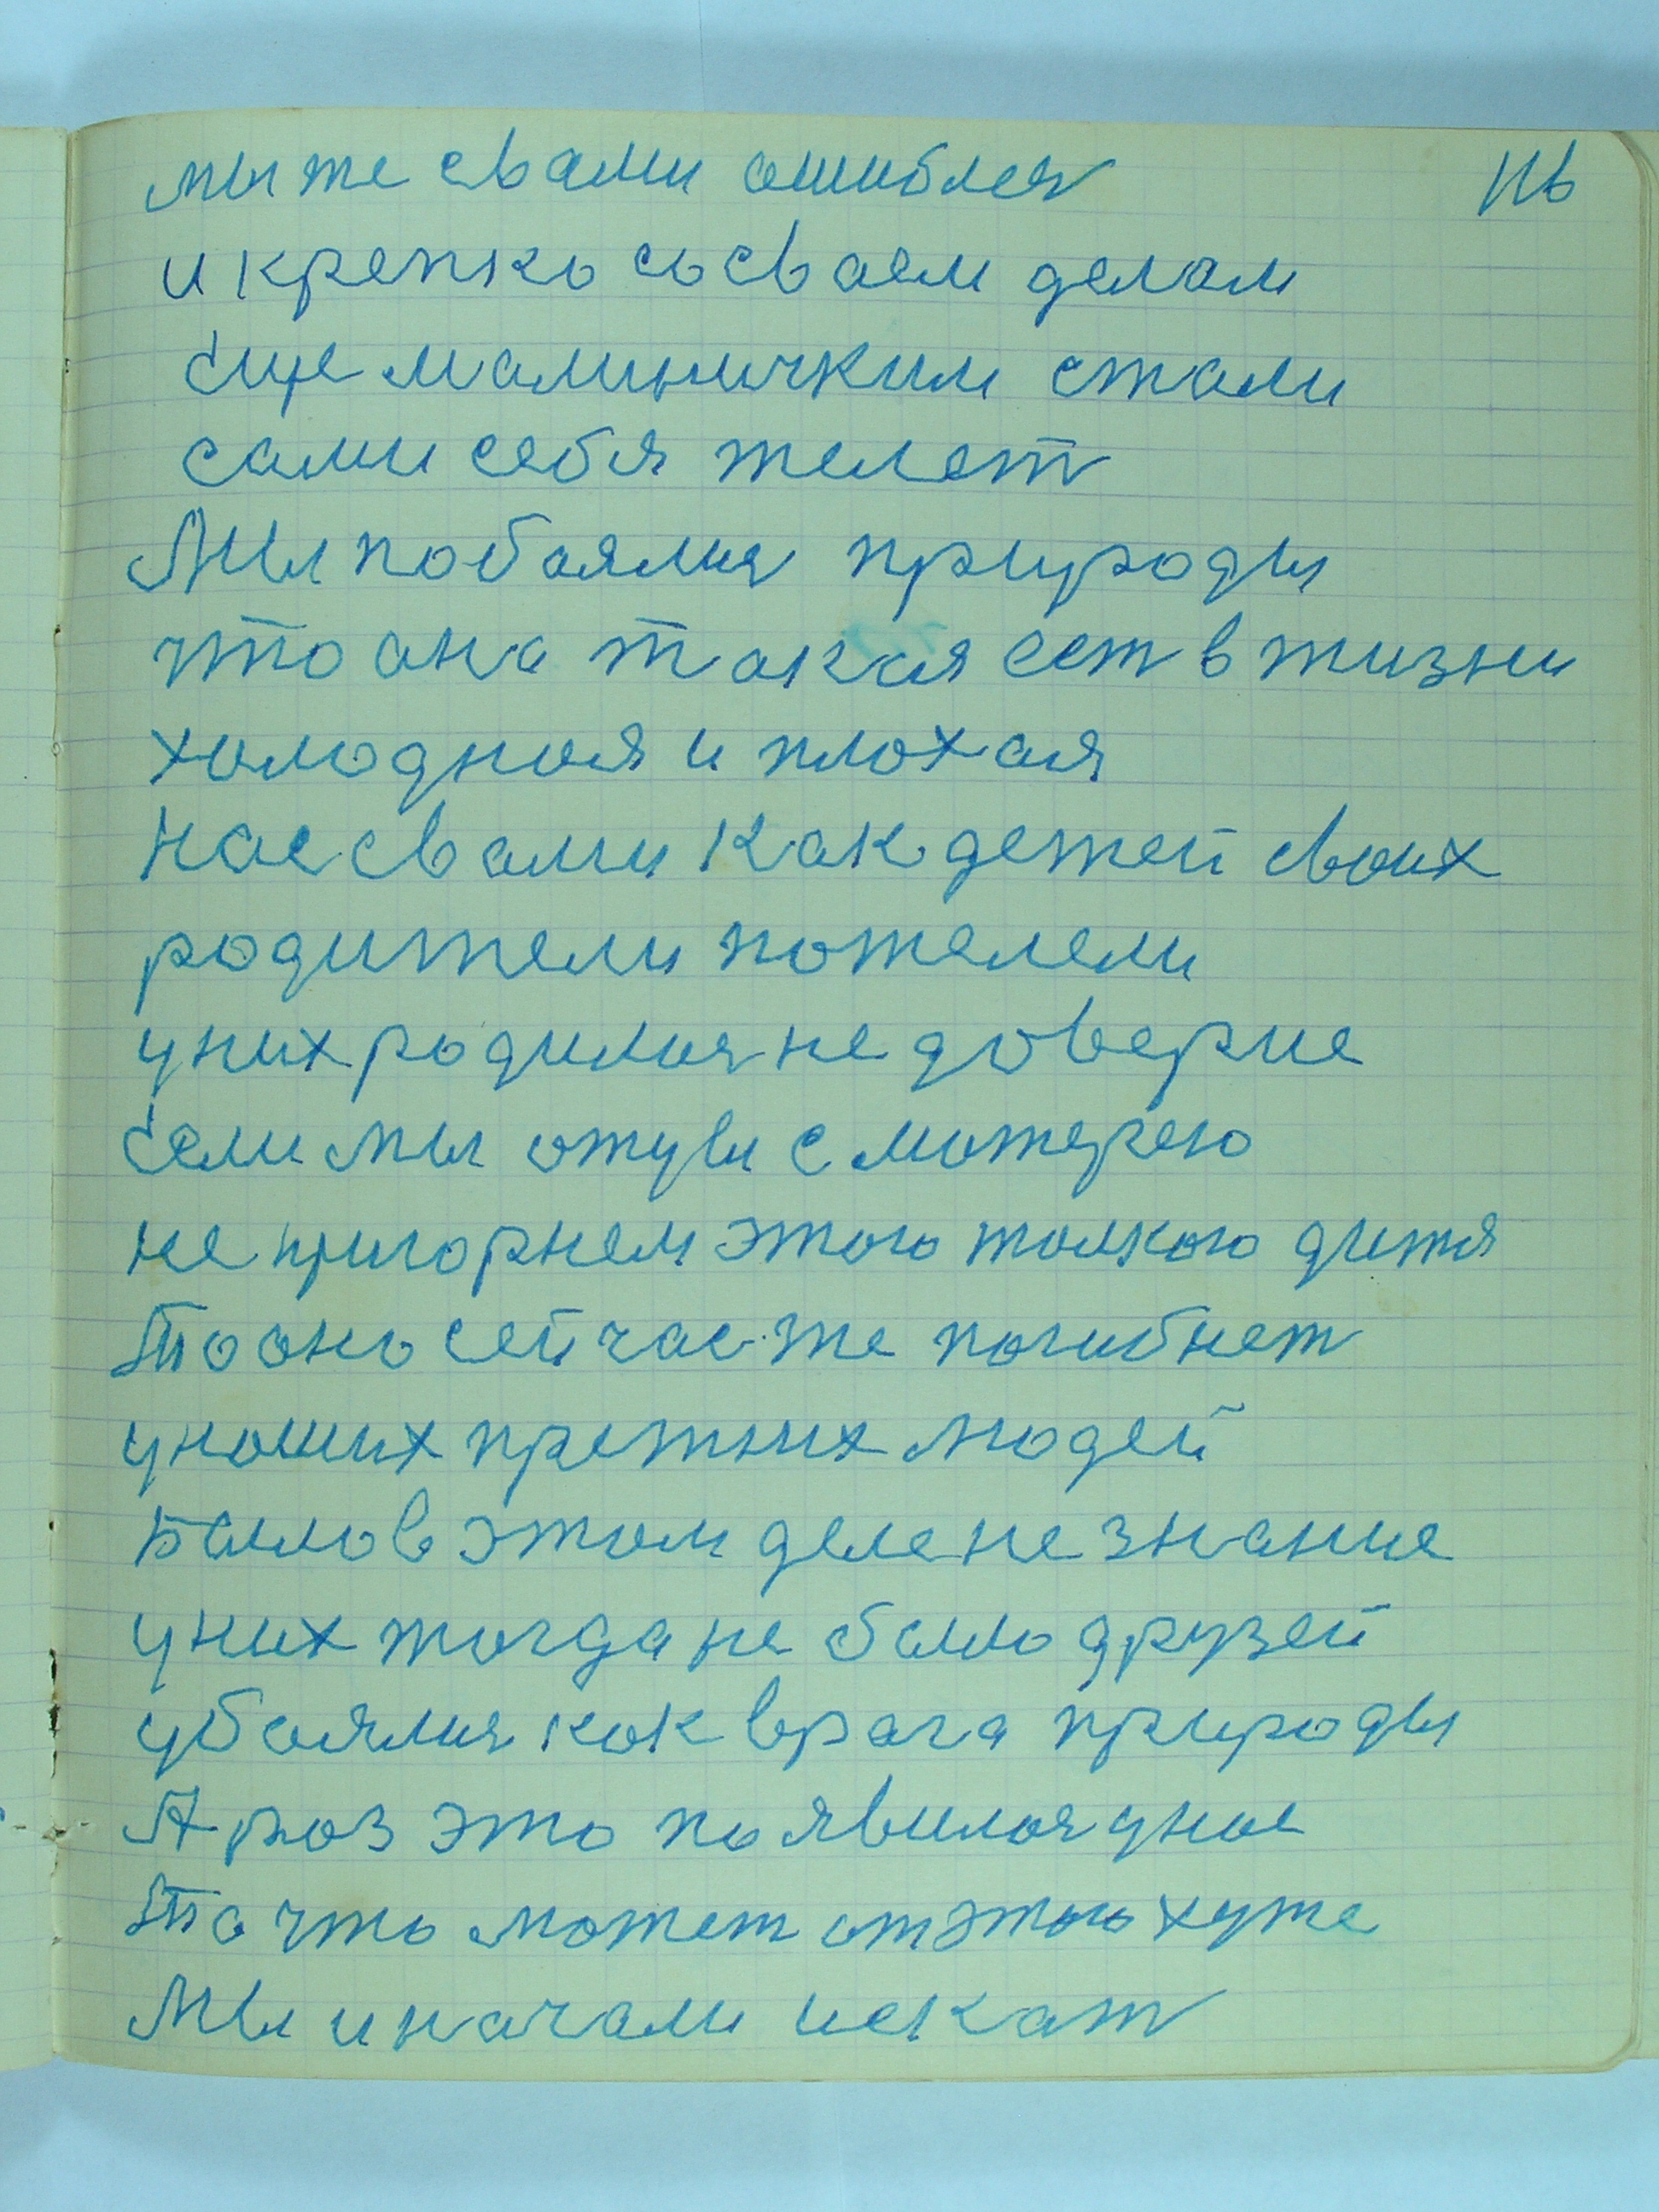 мы же свами ошиблся 116
и крепко со сваем делам
Еще малиничким стали
сами себя желет
Мы побаялися природы
что она такая ест в жизни
холодная и плохая
Нас свами как детей своих
родители пожелели
у них родилися не доверие
Если мы отцы с матерею
не пригорнем этого толкого дитя
То оно сейчас же погибнет
у наших прежних людей
Было в этом деле не знание
у них тогда не было друзей
убаялися как врага природы
А раз это появилося у нас
То что может от этого хуже
Мы и начали искат